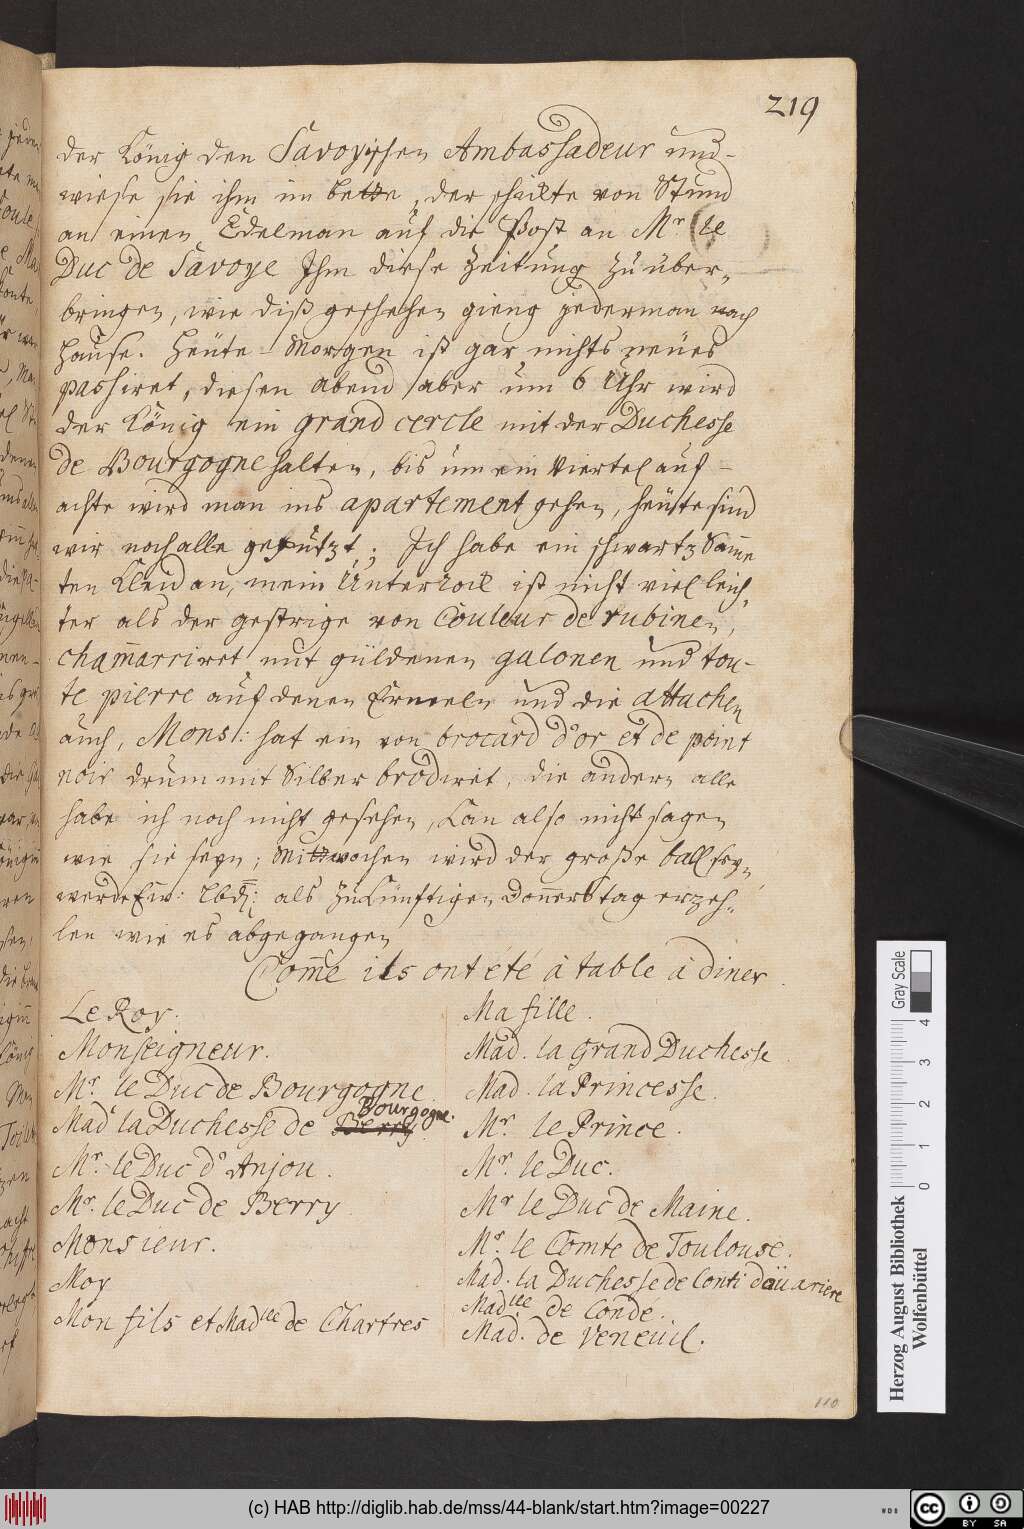 219
der König den Savoyischen Ambassadeur und
wiese sie ihm im bette, der schickte von Stund
an einen Edelman auf die Post an Mr. le
Duc de Savoye Ihm diese Zeitung zu über-
bringen, wie diß geschehen gieng jederman nach
hause. Heüte Morgen ist gar nichts neües
passiret, diesen abend aber um 6 Uhr wird
der König ein grand cercle mit der Duchesse
de Bourgogne halten, bis um ein Viertel auf
achte wird man ins apartement gehen, heüte sind
wir noch alle geputzt; Ich habe ein schwartz Sam̄e
ten Kleid an, mein Unterrock ist nicht viel leich-
ter als der gestrige von Couleur de rubinen,
cham̄arriret mit güldenen galonen und tou-
te pierre auf denen Ermeln und die attachen
auch, Mons: hat ein von brocard d'or et de point
noir drum mit Silber brodiret, die andern alle
habe ich noch nicht gesehen, kan also nicht sagen
wie sie seyn; Mittwochen wird der große ball seyn,
werde Ew: Lbd: als zukünfftigen Don̄erstag erzeh-
len wie es abgegangen
Com̄e ils ont été à table à diner.
Le Roy.
Monseigneur.
Mr. le Duc de Bourgogne.
Mad. la Duchesse de Berry Bourgogne.
Mr. le Duc d'Anjou.
Mr. le Duc de Berry
Monsieur.
Moy
Mon fils et Madlle de Chartres
Ma fille.
Mad. la Grand Duchesse
Mad. la Princesse.
Mr. le Prince.
Mr. le Duc.
Mr le Duc de Maine.
Mr. le Comte de Toulouse.
Mad. la Duchesse de Conti doüariere
Madlle de Condé.
Mad. de Verneuil.
110
Gray Scale
4
3
2
1
0
Herzog August Bibliothek
Wolfenbüttel
(c) HAB http://diglib.hab.de/mss/44-blank/start.htm?image=00227
WDB
cc
BY SA